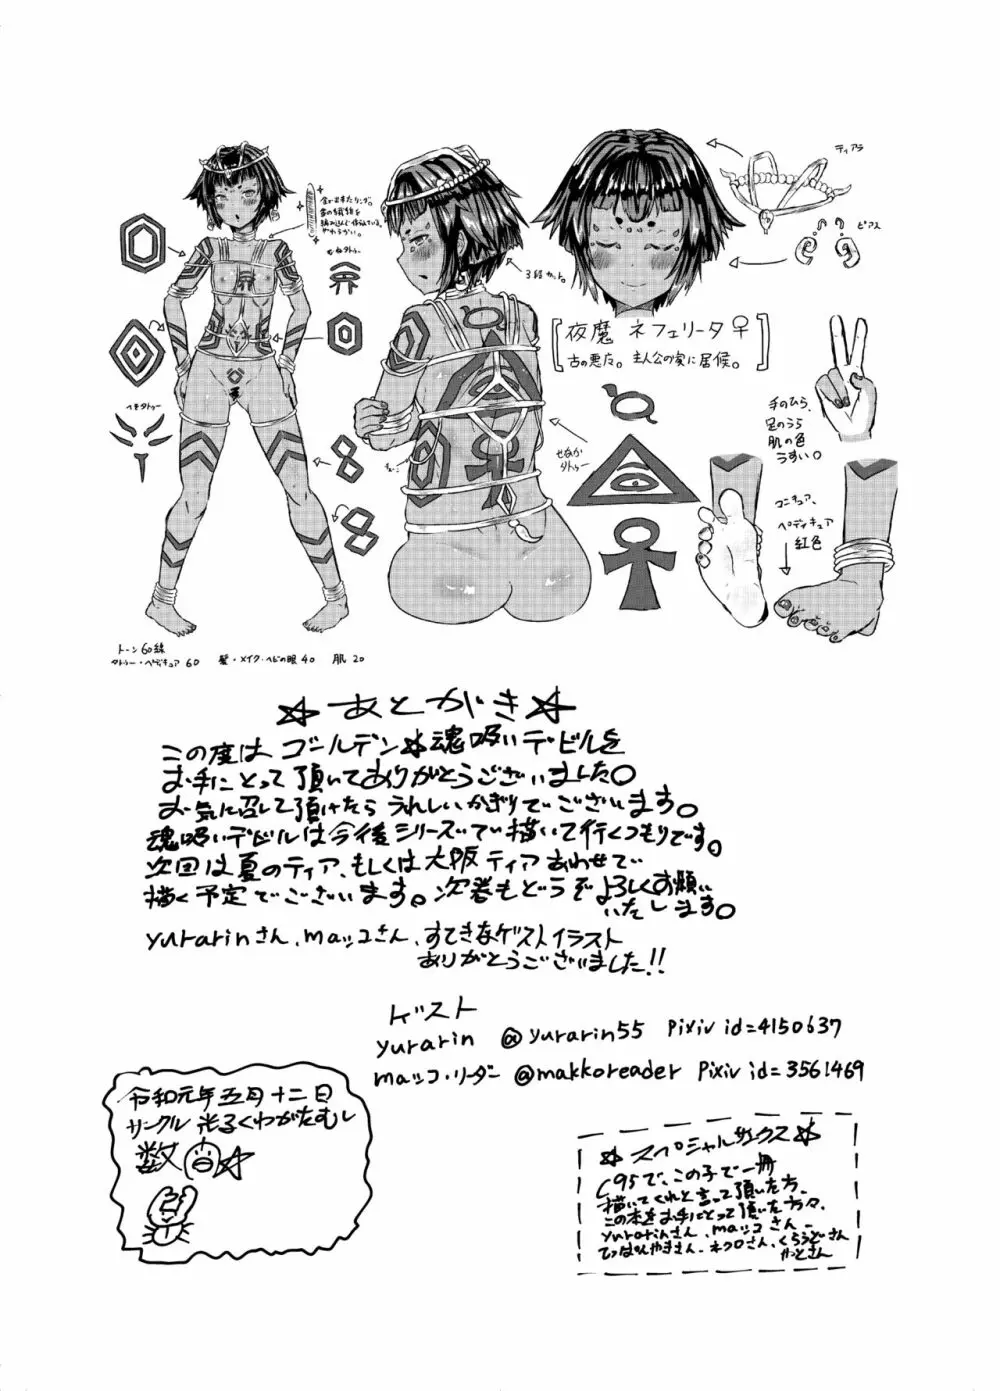 ティアラ
ピアス
3段カット。
むねタトゥー
へそタトゥー
せなかタトゥー
夜魔 ネフェリータ♀
古の悪魔。主人公の家に居候。
手のひら、
足のうら
肌の色
うすい。
ペディキュア
紅色
トーン60線
タトゥー・ペディキュア 60 髪・メイク・ヘビの眼 40 肌 20
☆あとがき☆
この度はゴールデン☆魂吸いデビルを
お手にとって頂いてありがとうございました。
お気に召して頂けたらうれしいかぎりでございます。
魂吸いデビルは今後シリーズで描いて行くつもりです。
次回は夏のティア、もしくは大阪ティアあわせで
描く予定でございます。次巻もどうぞよろしくお願い
いたします。
yurarinさん、maッコさん、すてきなゲストイラスト
ありがとうございました!!
ゲスト
yurarin @yurarin55 Pixiv id=4150637
maッコ・リーダー @makkoreader Pixiv id=3561469
令和元年五月十二日
サークル 光るくわがたむし
数
☆スペシャルサンクス☆
C95で、この子で一冊
描いてくれと言って頂いた方、
この本をお手にとって頂いた方々、
yurarinさん、maッコさん、
てっぱんやきさん、ネクロさん、くらうどさん